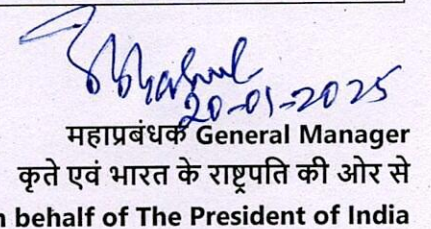 20-01-2025
महाप्रबंधक General Manager
कृते एवं भारत के राष्ट्रपति की ओर से
behalf of The President of India